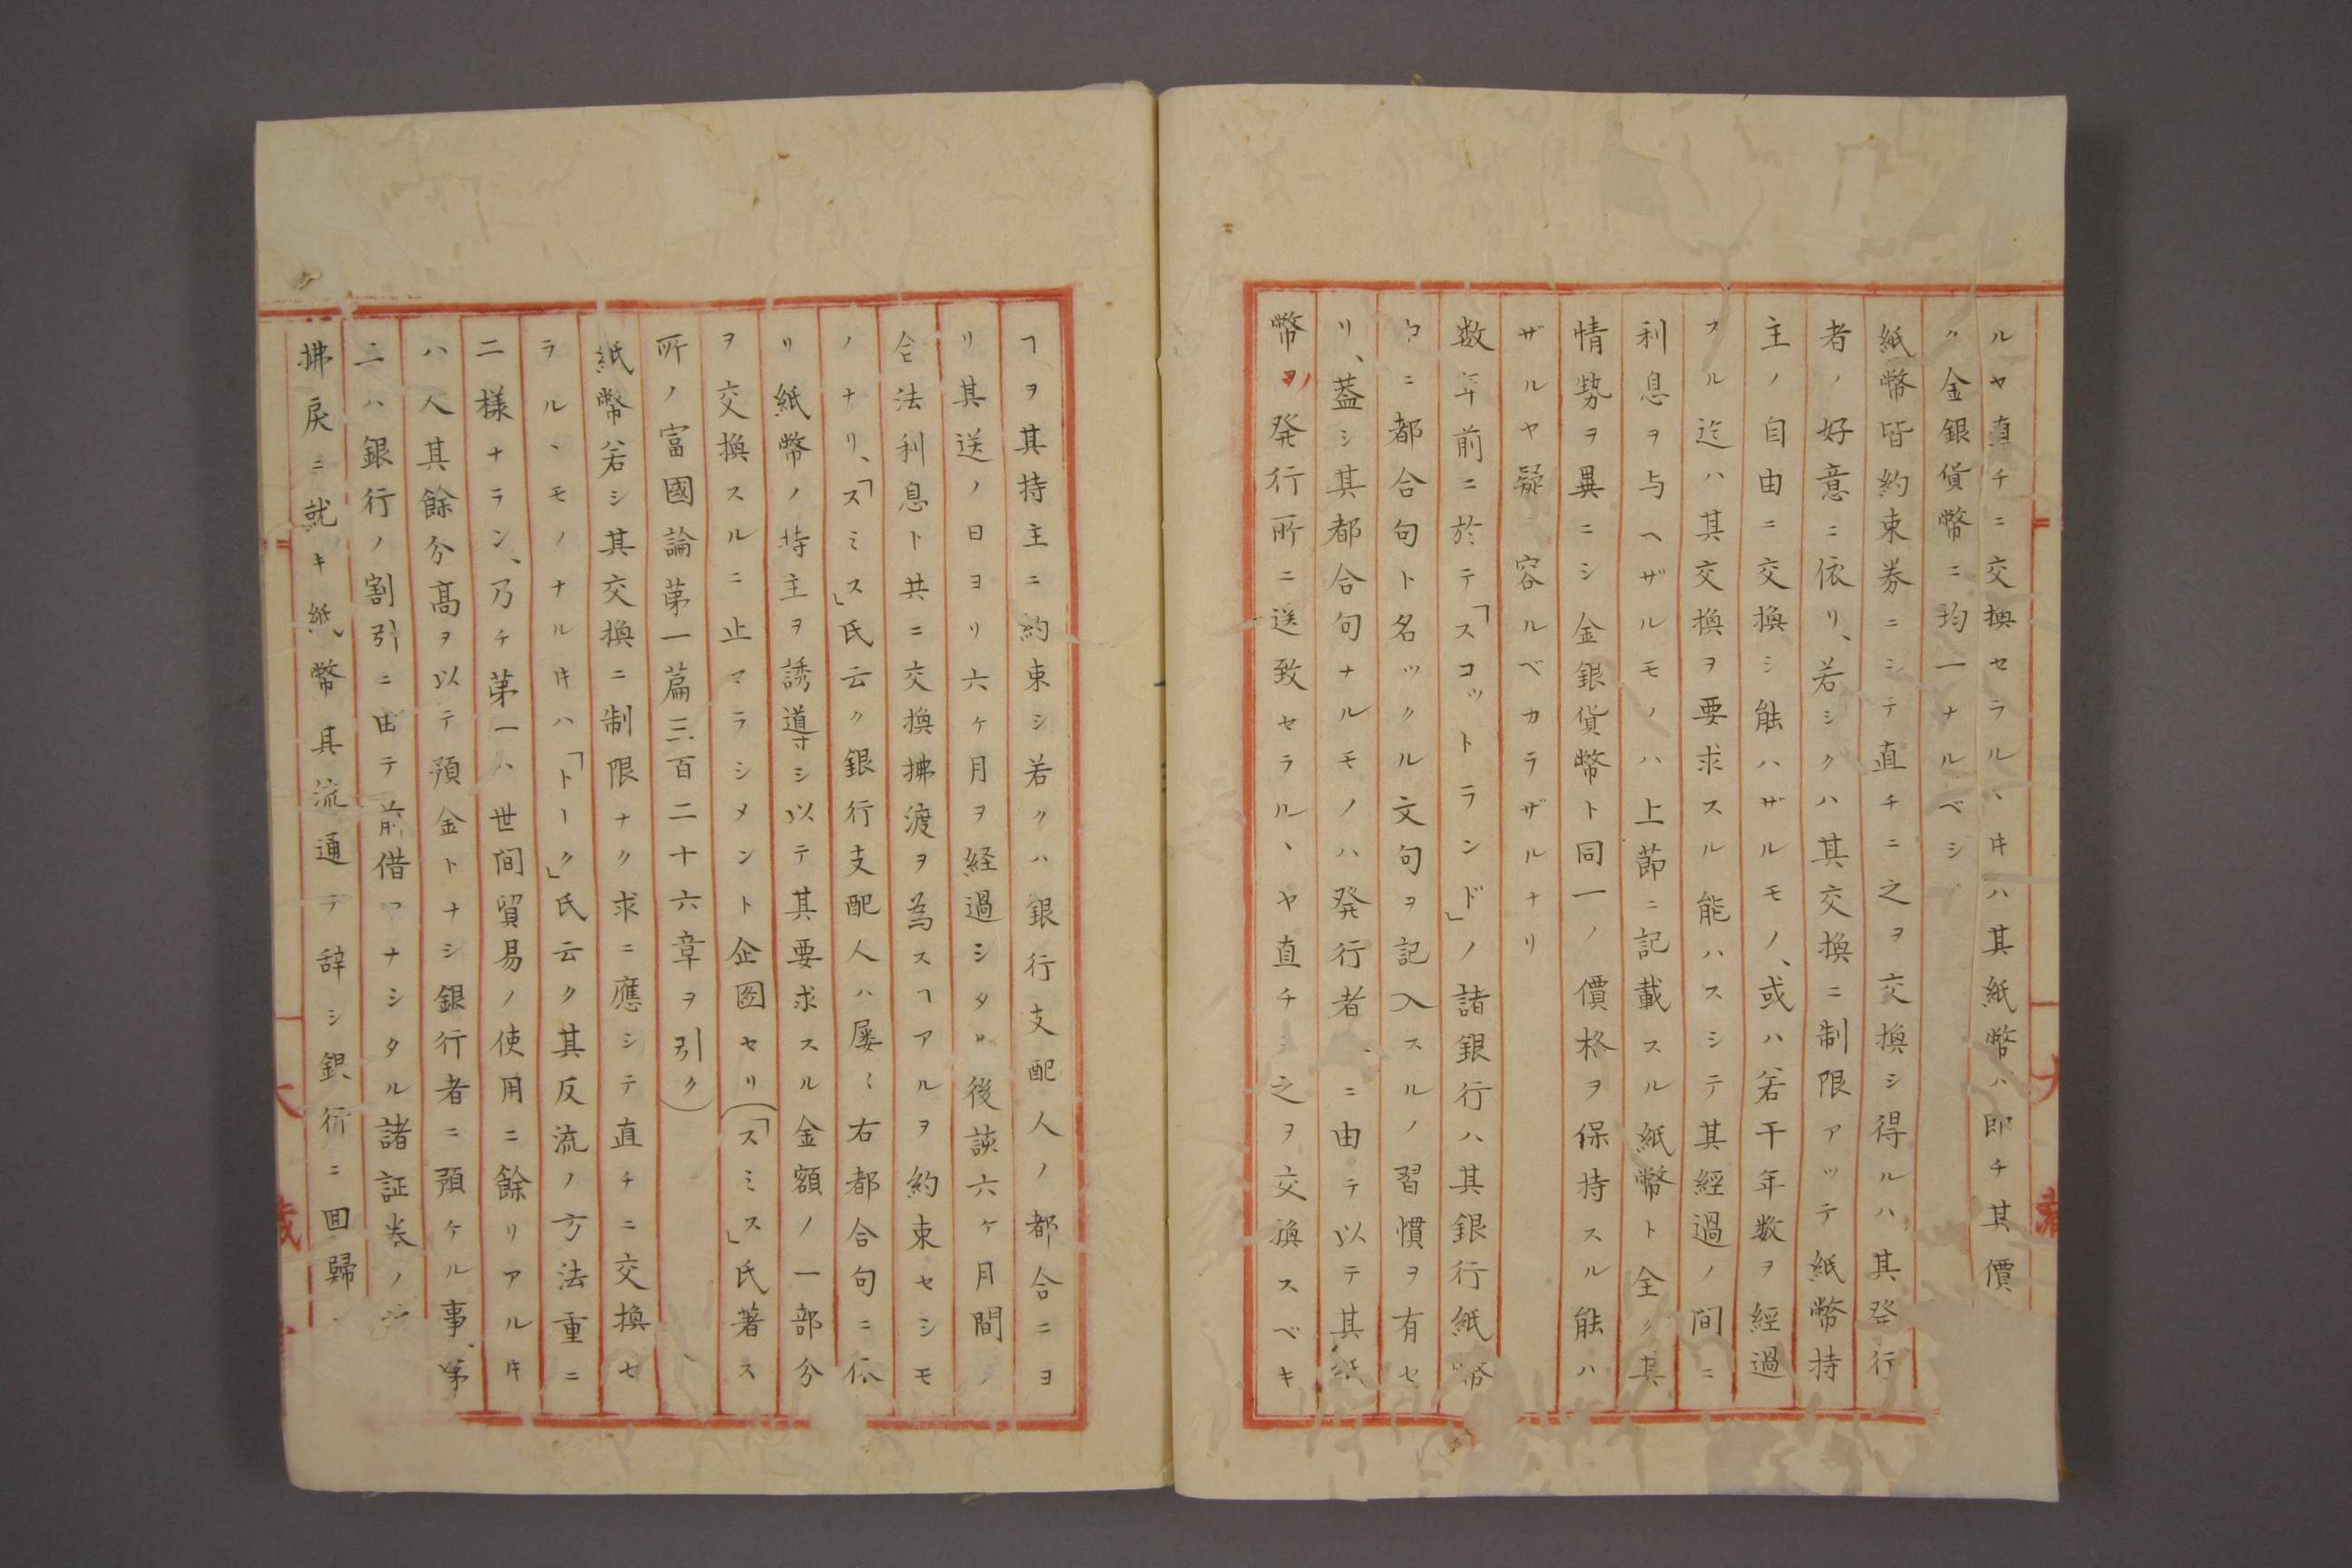 ルヤ直チニ交換セラルヽ𪜈ハ其紙幣ハ即チ其價
ク金銀貨幣ニ均一ナルベシ
紙幣皆約束券ニシテ直チニ之ヲ交換シ得ルハ其発行
者ノ好意ニ依リ、若シクハ其交換ニ制限アッテ紙幣持
主ノ自由ニ交換シ能ハザルモノ、或ハ若干年数ヲ經過
スル迄ハ其交換ヲ要求スル能ハスシテ其經過ノ間ニ
利息ヲ与ヘザルモノハ上節ニ記載スル紙幣ト全ク其
情勢ヲ異ニシ金銀貨幣ト同一ノ價格ヲ保持スル能ハ
ザルヤ疑容ルベカラザルナリ
数年前ニ於テ「スコットランド」ノ諸銀行ハ其銀行紙幣
ニ都合句ト名ックル文句ヲ記入スルノ習慣ヲ有セ
リ、蓋シ其都合句ナルモノハ発行者ニ由テ以テ其紙
幣ヲ発行所ニ送致セラルヽヤ直チニ之ヲ交換スベキ
ヿヲ其持主ニ約束シ若クハ銀行支配人ノ都合ニヨ
リ其送ノ日ヨリ六ヶ月ヲ経過シタル後談六ヶ月間ノ
合法利息ト共ニ交換拂渡ヲ為スヿアルヲ約束セシモ
ノナリ、「スミス」氏云ク銀行支配人ハ屡〻右都合句ニ依
リ紙幣ノ持主ヲ誘導シ以テ其要求スル金額ノ一部分
ヲ交換スルニ止マラシメント企図セリ(「スミス」氏著ス
所ノ富國論第一篇三百二十六章ヲ引ク)
紙幣若シ其交換ニ制限ナク求ニ應シテ直チニ交換セ
ラルヽモノナル𪜈ハ「トーク」氏云ク其反流ノ方法重ニ
二様ナラン、乃チ第一ハ世間貿易ノ使用ニ餘リアル𪜈
ハ人其餘分高ヲ以テ預金トナシ銀行者ニ預ケル事、第
二ハ銀行ノ割引ニ由テ前借ヿナシタル諸証券ノ
拂戻ニ就キ紙幣其流通ヲ辞シ銀行ニ回歸